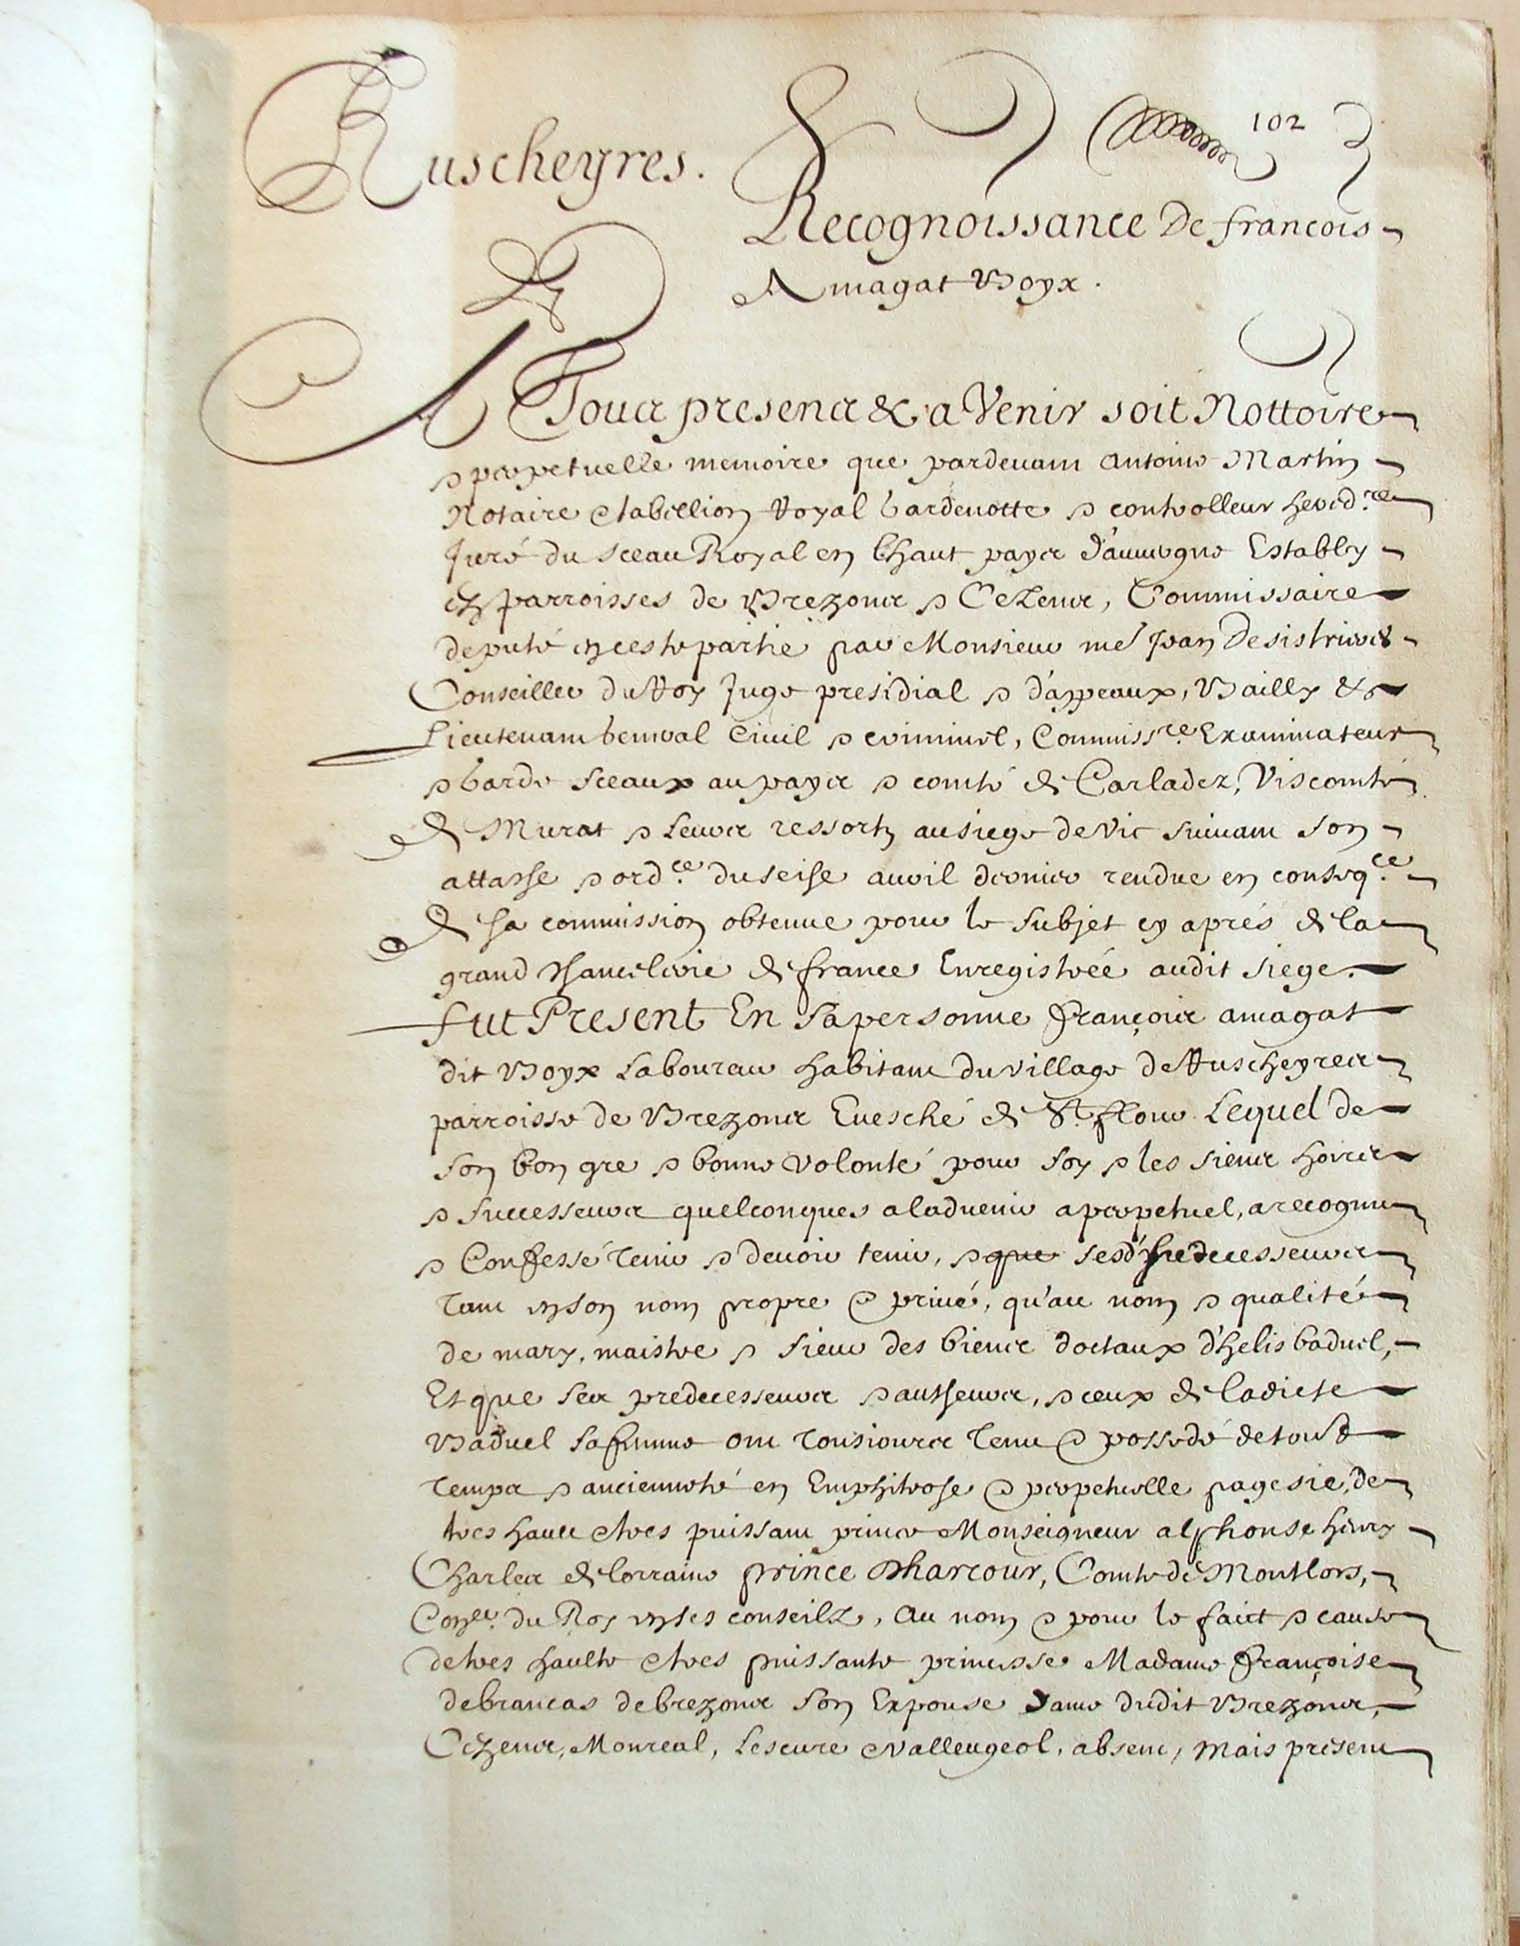 102
Ruscheyres.
Recognoissance De francois
Amagat Boyx.
A Tous presens & a Venir soit Nottoire
& perpetuelle memoire que pardevant Antoine Martin
Notaire & tabellion Royal Gardenotte & controlleur hered.re
Juré du sceau Royal en Chaut payx d'auvergne Estably
ez parroisses de Brezons & Cezens, Commissaire
deputé en ceste partie par Monsieur me Jean Desistrieres
Conseiller du Roy Juge presidial & d'appeaux, Bailly &
Lieutenant general Civil & criminel, Commiss.re Examinateur
& garde sceaux au payx & comté de Carladez, Viscomté
de Murat & leurs ressortz au siege de Vic suivant son
attasse & ord.ce du seise avril dernier rendue en conseq.ce
de sa commission obtenue pour le subjet cy aprés de la
grand Chancelerie de france Enregistrée audit siege.
fut Present En sa personne françois amagat
dit Boyx Laboureur habitant du village de Ruscheyres
parroisse de Brezons Evesché de St flour Lequel de
son bon gre & bonne volonté pour soy & les siens hoirs
& successeurs quelconques a ladvenir a perpetuel, a recognu
& Confessé tenir & devoir tenir, & que sesd predecesseurs
tant en son nom propre & privé, qu'au nom & qualité
de mary, maistre & sieur des biens doctaux d'helis baduel,
Et que ses predecesseurs & autheurs, & ceux de ladicte
Baduel sa femme ont tousiours tenu & possedé de tout
temps & ancienneté en Emphiteose & perpetuelle pagesie, de
tres haut & tres puissant prince Monseigneur alphonse henry
Charles de lorraine prince Dharcour, Comte de Montlors,
Con.er du Roy en ses conseilz, au nom & pour le faict & cause
de tres haulte & tres puissante princesse Madame françoise
de brancas de brezons son Expouse dame dudit Brezons,
Cezens, Monreal, Lescure & valleugeol, absent, mais present